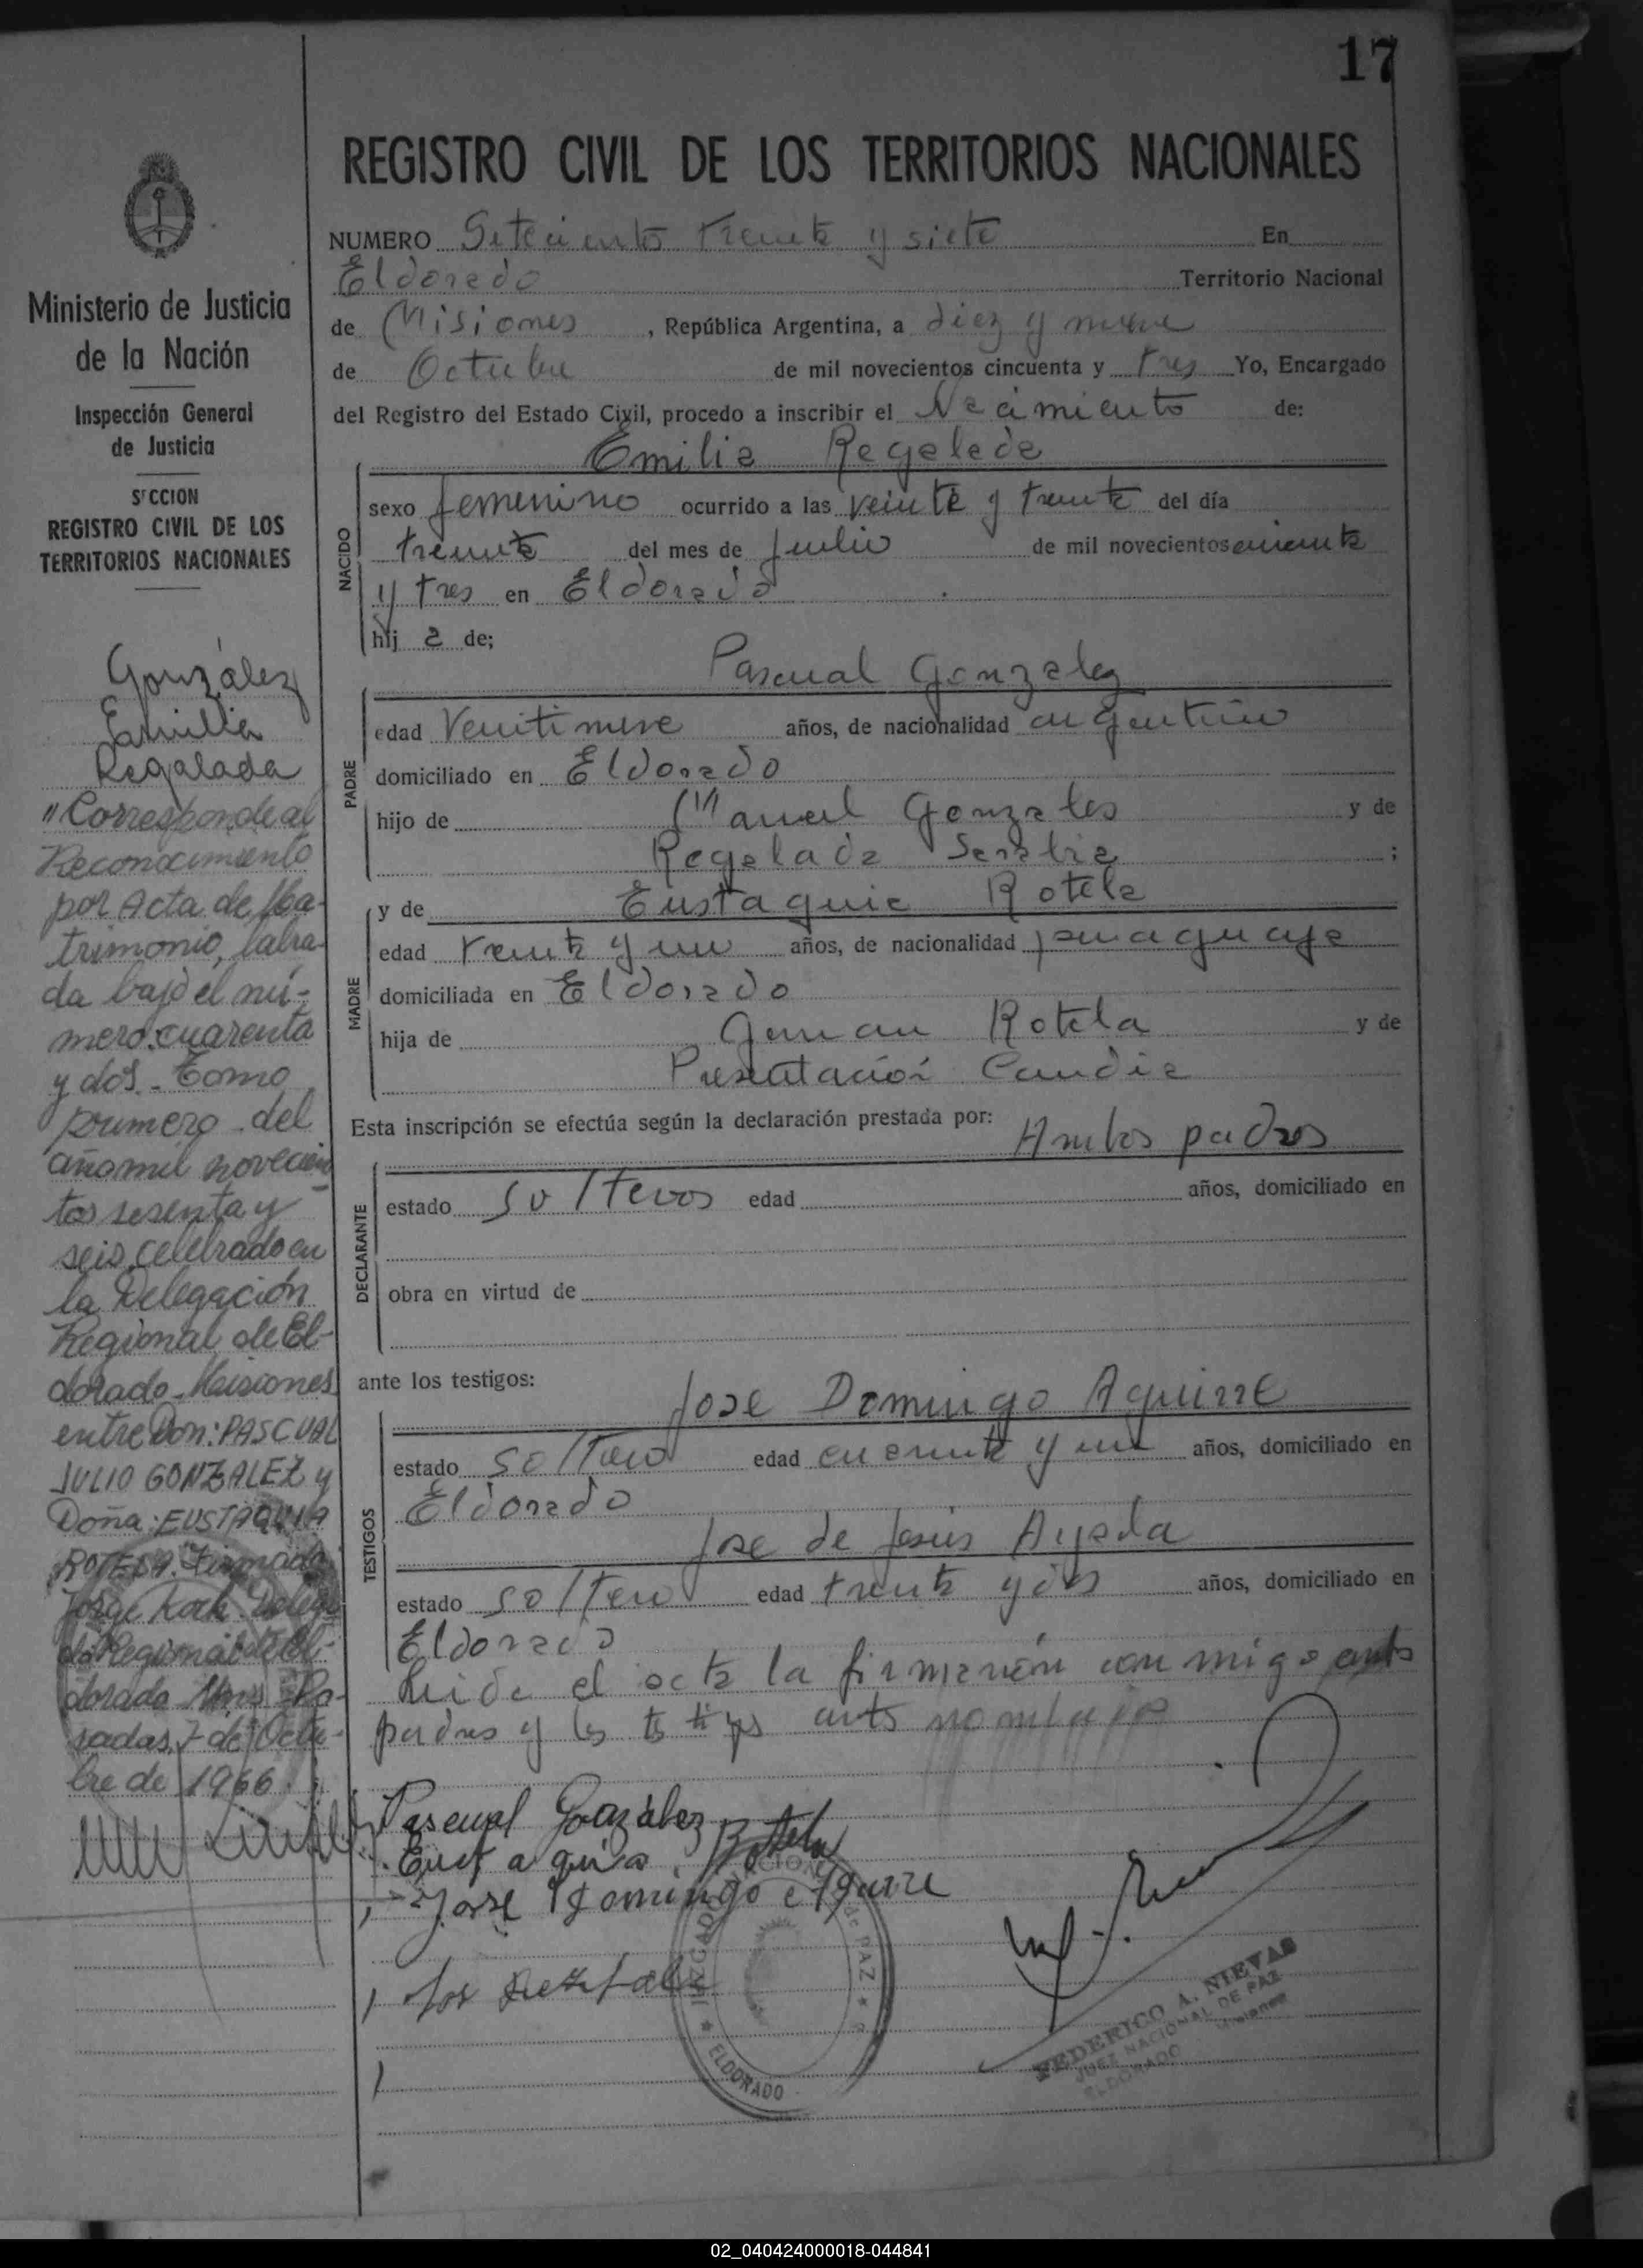 17
REGISTRO CIVIL DE LOS TERRITORIOS NACIONALES
Ministerio de Justicia
de la Nación
Inspección General
de Justicia
S'CCION
REGISTRO CIVIL DE LOS
TERRITORIOS NACIONALES
González
Emilia
Regalada
"Corresponde al
Reconocimiento
por Acta de Ma-
trimonio, labra-
da bajo el nú-
mero: cuarenta
y dos. Tomo
primero del
año mil novecien
tos sesenta y
seis, celebrado en
la Delegación
Regional de El-
dorado - Misiones
entre Don: PASCUAL
JULIO GONZALEZ y
Doña: EUSTAQUIA
ROTELA. Firmado:
Jorge Koch Delega
do Regional de El-
dorado Mnes Po-
sadas, 7 de Octu-
bre de 1966.
NUMERO Setecientos treinta y siete En
Eldorado Territorio Nacional
de Misiones, República Argentina, a diez y nueve
de Octubre de mil novecientos cincuenta y tres Yo, Encargado
del Registro del Estado Civil, procedo a inscribir el Nacimiento de:
Emilia Regalada
NACIDO
sexo femenino ocurrido a las veinte y treinta del día
treinta del mes de Julio de mil novecientos cincuenta
y tres en Eldorado
hij a de;
Pascual Gonzalez
PADRE
edad Veintinueve años, de nacionalidad argentino
domiciliado en Eldorado
hijo de Manuel Gonzales y de
Regalada Sanabria ;
y de Eustaquia Rotela
MADRE
edad treinta y un años, de nacionalidad paraguaya
domiciliada en Eldorado
hija de German Rotela y de
Presentación Candia
Esta inscripción se efectúa según la declaración prestada por: Ambos padres
DECLARANTE
estado solteros edad años, domiciliado en
obra en virtud de
ante los testigos:
Jose Domingo Aguirre
TESTIGOS
estado soltero edad cuarenta y un años, domiciliado en
Eldorado
Jose de Jesús Ayala
estado soltero edad treinta y dos años, domiciliado en
Eldorado
Leida el acta la firmarón conmigo ambos
padres y los testigos antes
Pascual González
Eustaquia Rotela
Jose Domingo Aguirre
JUZGADO NACIONAL de PAZ
ELDORADO
FEDERICO A. NIEVAS
JUEZ NACIONAL DE PAZ
ELDORADO Misiones
02_040424000018-044841